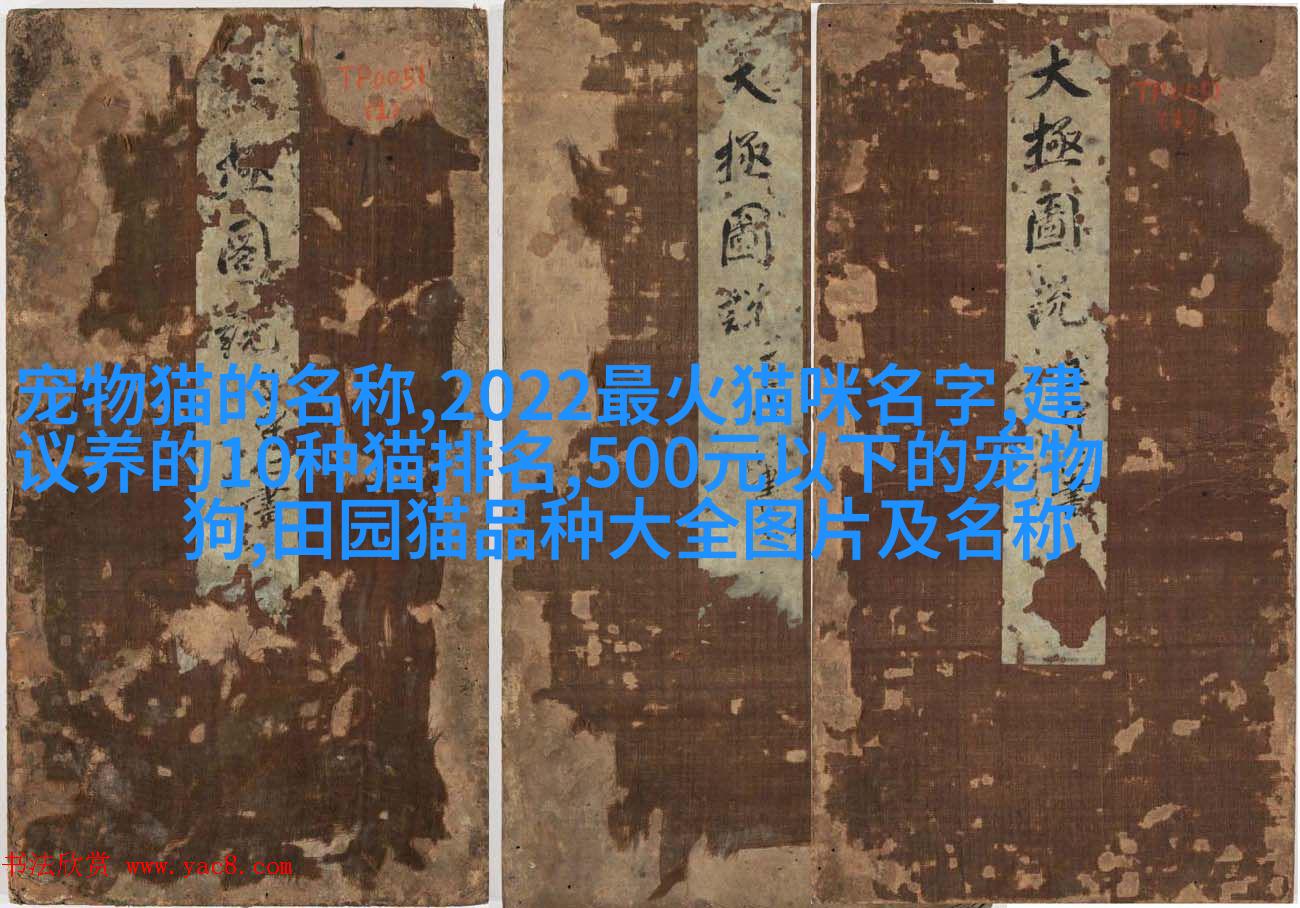 TP0051
(1)
極圖說
書
大極圖說
書
大極圖说
書
宠物猫的名称,2022最火猫咪名字,建
议养的10种猫排名,500元以下的宠物
狗,田园猫品种大全图片及名称
书法欣赏 www.yac8.com